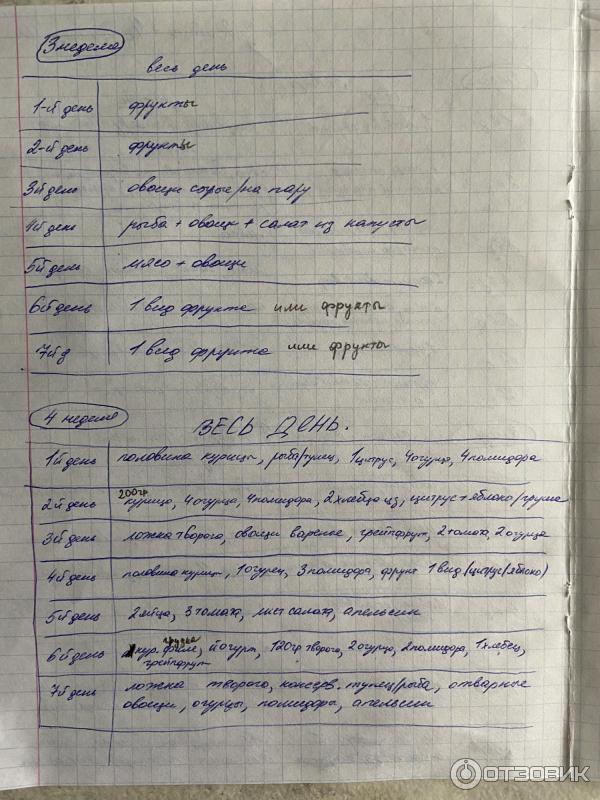 3 неделя
весь день
1-й день фрукты
2-й день фрукты
3й день овощи сырые/на пару
4й день рыба + овощи + салат из капусты
5й день мясо + овощи
6й день 1 вид фрукта или фрукты
7й д 1 вид фрукта или фрукты
4 неделя
ВЕСЬ ДЕНЬ.
1й день половина курицы, рыба/тунец, 1 цитрус, 4 огурца, 4 помидора
200гр
2й день курица, 4 огурца, 4 помидора, 2 хлебца, цитрус + яблоко/груша
3й день ложка творога, овощи вареные, грейпфрут, 2 томата, 2 огурца
4й день половина курицы, 1 огурец, 3 помидора, фрукт 1 вид (цитрус/яблоко)
5й день 2 яйца, 3 томата, лист салата, апельсин
грудка
6й день кур. филе, йогурт, 120гр творога, 2 огурца, 2 помидора, 1 хлебец,
грейпфрут
7й день ложка творога, консерв. тунец/рыба, отварные
овощи, огурцы, помидоры, апельсин
ОТЗОВИК